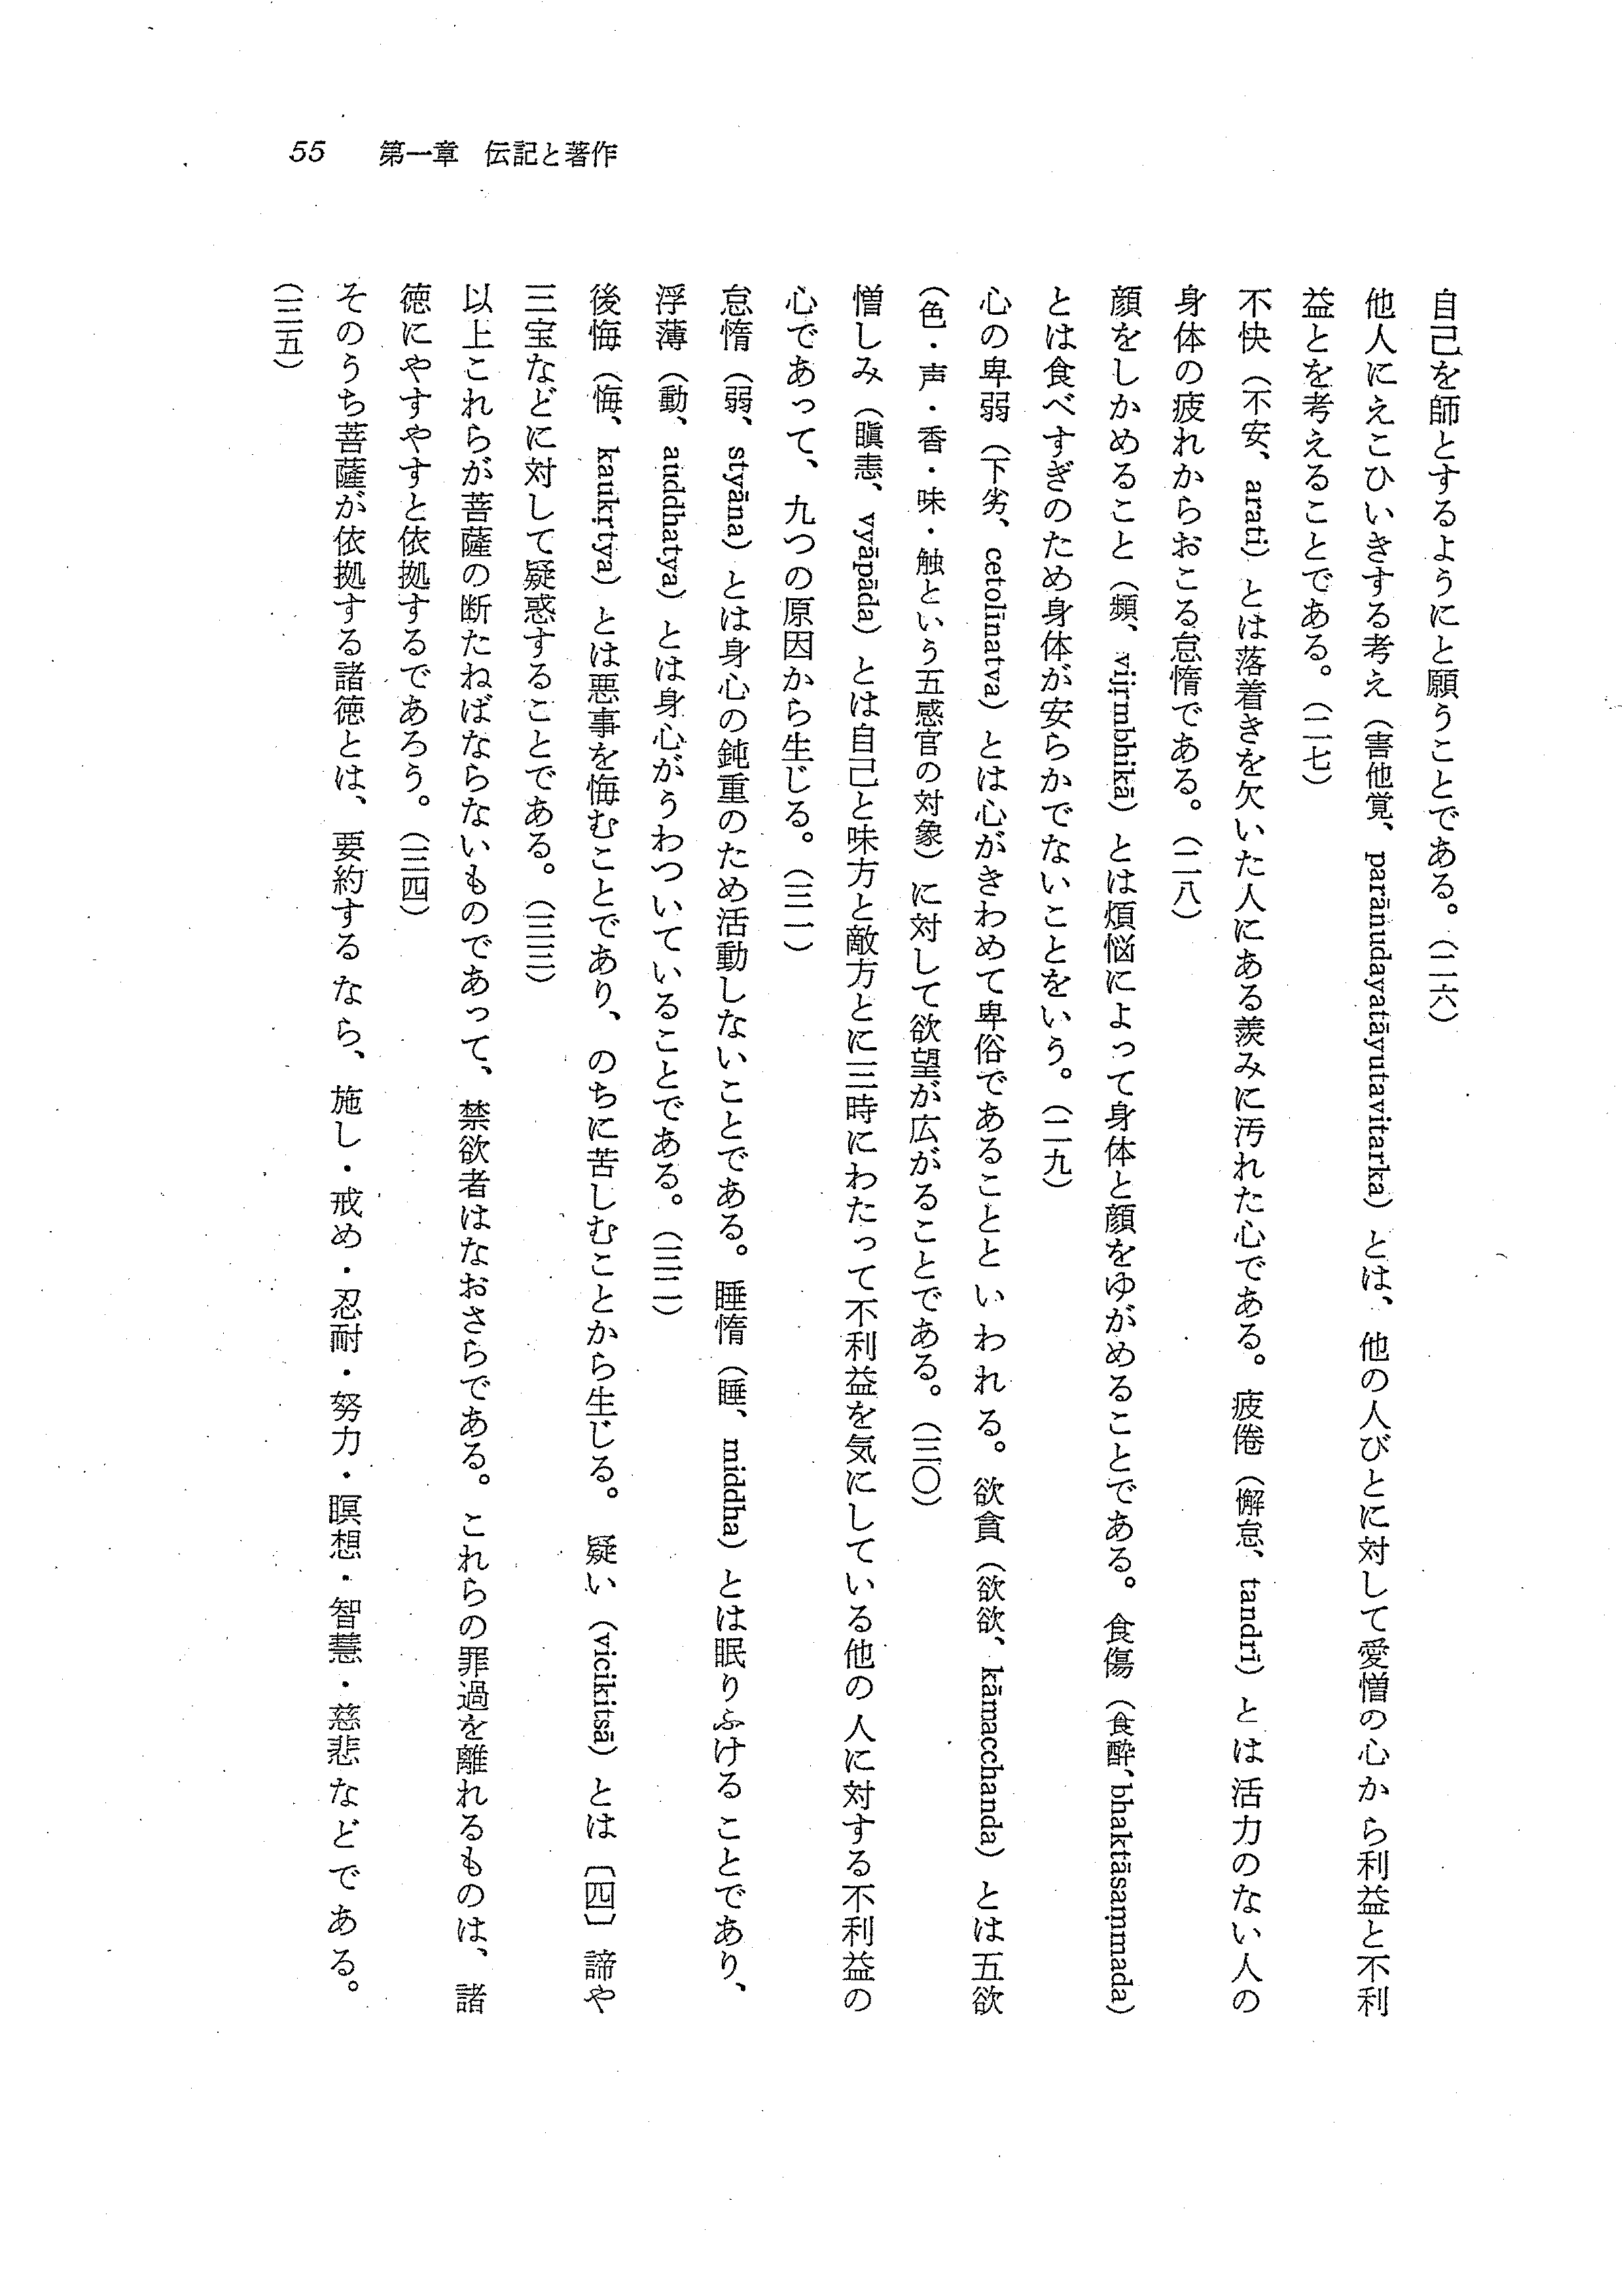 55 第一章 伝記と著作
自己を師とするようにと願うことである。（二六）
他人にえこひいきする考え（害他覚、parānudayatāyutavitarka）とは、他の人びとに対して愛憎の心から利益と不利
益とを考えることである。（二七）
不快（不安、arati）とは落着きを欠いた人にある羨みに汚れた心である。疲倦（懈怠、tandrī）とは活力のない人の
身体の疲れからおこる怠惰である。（二八）
顔をしかめること（頻、vijṛmbhikā）とは煩悩によって身体と顔をゆがめることである。食傷（食酔、bhaktāsaṃmada）
とは食べすぎのため身体が安らかでないことをいう。（二九）
心の卑弱（下劣、cetolīnatva）とは心がきわめて卑俗であることといわれる。欲貪（欲欲、kāmacchanda）とは五欲
（色・声・香・味・触という五感官の対象）に対して欲望が広がることである。（三〇）
憎しみ（瞋恚、vyāpāda）とは自己と味方と敵方とに三時にわたって不利益を気にしている他の人に対する不利益の
心であって、九つの原因から生じる。（三一）
怠惰（弱、styāna）とは身心の鈍重のため活動しないことである。睡惰（睡、middha）とは眠りふけることであり、
浮薄（動、auddhatya）とは身心がうわついていることである。（三二）
後悔（悔、kaukṛtya）とは悪事を悔むことであり、のちに苦しむことから生じる。疑い（vicikitsā）とは〔四〕諦や
三宝などに対して疑惑することである。（三三）
以上これらが菩薩の断たねばならないものであって、禁欲者はなおさらである。これらの罪過を離れるものは、諸
徳にやすやすと依拠するであろう。（三四）
そのうち菩薩が依拠する諸徳とは、要約するなら、施し・戒め・忍耐・努力・瞑想・智慧・慈悲などである。
（三五）